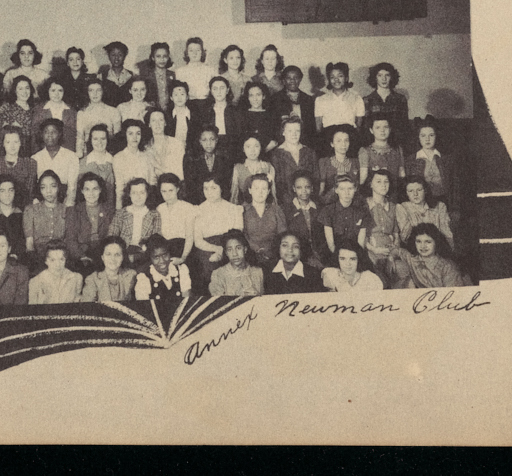 Annex Newman Club